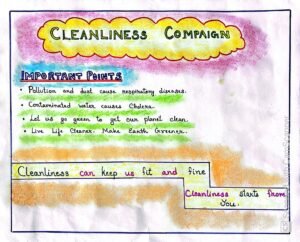 CLEANLINESS COMPAIGN
IMPORTANT POINTS
• Pollution and dust cause respiratory diseases.
• Contaminated water causes Cholera.
• Let us go green to get our planet clean.
• Live Life Cleaner. Make Earth Greener.
Cleanliness can keep us fit and fine
Cleanliness starts from
You.